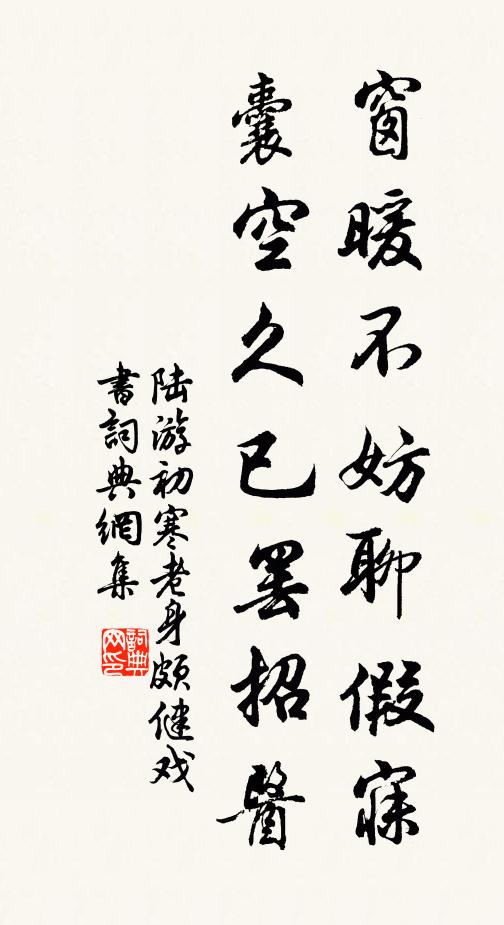 窗暖不妨聊假寐
囊空久已罢招醫
陆游初寒老身颇健戏
書詞典網集
詞典网印